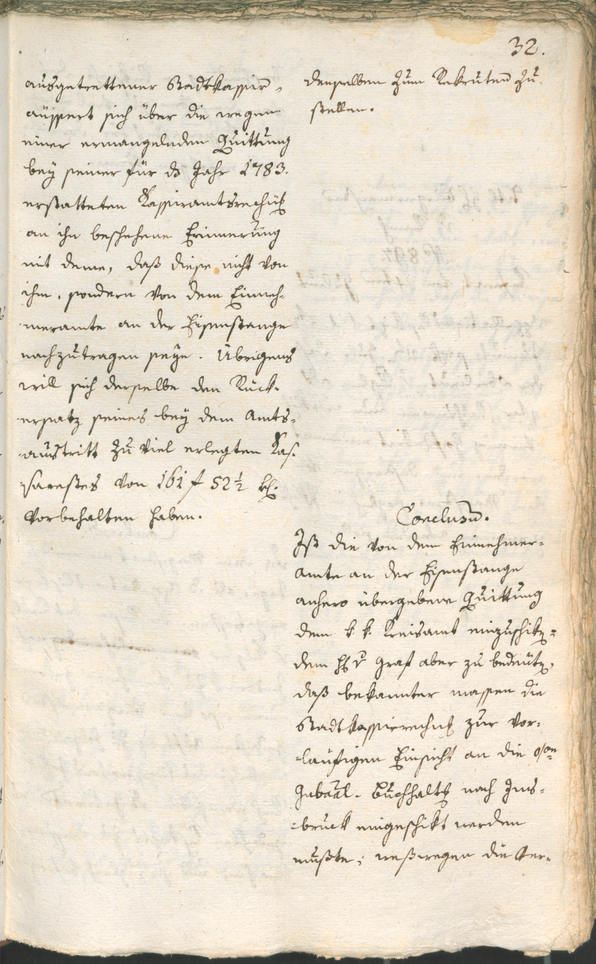 32.
ausgetrettener Stadtkassier,
äussert sich über die wegen
einer ermangelnden Quittung
bey seiner für ds Jahr 1783.
erstatteten Kassieramtsrechnung
an ihn beschehene Erinnerung
mit deme, daß diese nicht von
ihm, sondern von dem Einneh-
meramte an der Eisenstange
nachzutragen seye. Übrigens
will sich derselbe den Rück-
ersatz seines bey dem Amts-
austritt zu viel erlegten Kas-
sarestes von 161 f 52½ kr.
vorbehalten haben.
denselben zum Rekruten zu
stellen.
Conclusum.
Ist die von dem Einnehmer-
amte an der Eisenstange
anhero übergebene Quittung
dem k. k. Kreisamt einzuschiken
dem v. Graf aber zu bedeuten,
daß bekannter massen die
Stadtkassierrechnung zur vor-
läufigen Einsicht an die
Gubernial-Buchhaltung nach Ins-
bruck eingeschikt werden
mußte; weßwegen die Ver-